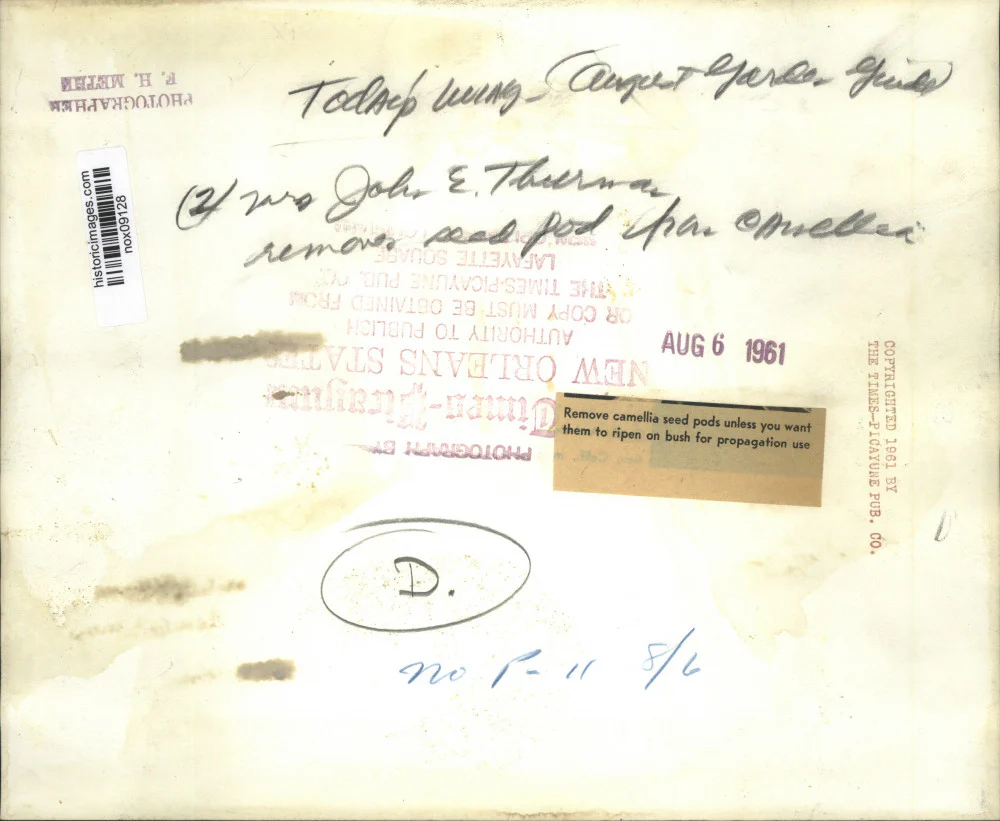 PHOTOGRAPHER
F. H. METHE
Today's Living - (August Garden Guide)
(2) Mrs John E. Thurman
removes seed pod from camellia
historicimages.com
nox09128
PHOTOGRAPH BY
Times-Picayune
NEW ORLEANS STATES
AUTHORITY TO PUBLISH
OR COPY MUST BE OBTAINED FROM
THE TIMES-PICAYUNE PUB. CO.
LAFAYETTE SQUARE
AUG 6 1961
Remove camellia seed pods unless you want
them to ripen on bush for propagation use
COPYRIGHTED 1961 BY
THE TIMES-PICAYUNE PUB. CO.
D.
no P-11 8/6